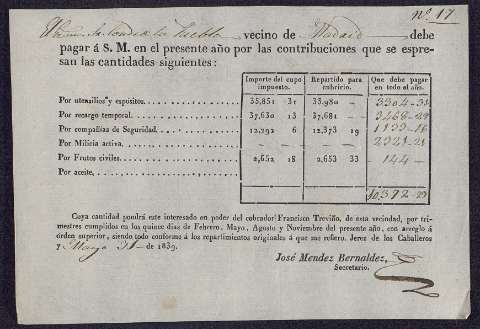 nº 17
vecino de Madrid debe
pagar á S. M. en el presente año por las contribuciones que se espre-
san las cantidades siguientes:
Importe del cupo impuesto. Repartido para cubrirlo. Que debe pagar en todo el año.
Por utensilios y espósitos. 35,851 31 33,980 - 3304-31
Por recargo temporal. 37,630 13 37,681 - 3468-29
Por compañías de Seguridad. 12,292 6 12,373 19
Por Milicia activa. - - - - 2321-21
Por Frutos civiles. 2,652 18 2,653 33 144-
Por aceite.
10,372-29
Cuya cantidad pondrá este interesado en poder del cobrador Francisco Treviño, de esta vecindad, por tri-
mestres cumplidos en los quince dias de Febrero, Mayo, Agosto y Noviembre del presente año, con arreglo á
órden superior, siendo todo conforme á los repartimientos originales á que me refiero. Jerez de los Caballeros
y Marzo 31 de 1839.
José Mendez Bernaldez,
Secretario.